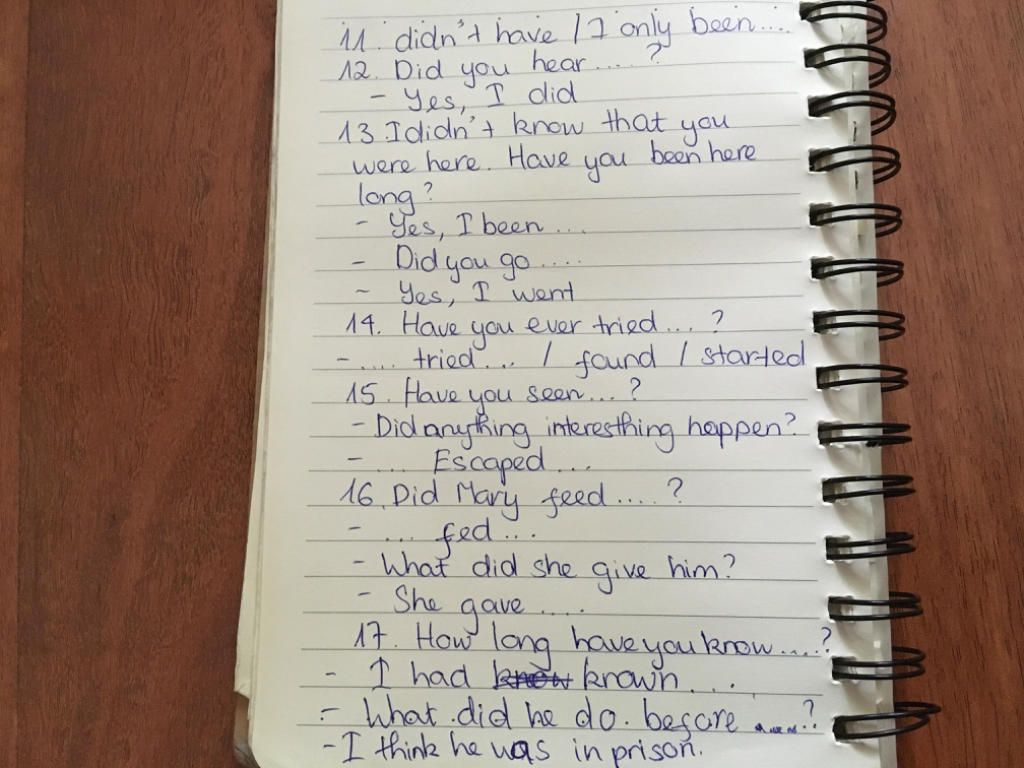 11. didn't have / I only been....
12. Did you hear.... ?
- Yes, I did
13 I didn't know that you
were here. Have you been here
long?
- Yes, I been ...
- Did you go ....
- Yes, I went
14. Have you ever tried... ?
- .... tried... / found / started
15. Have you seen... ?
- Did anything interesthing happen?
- ... Escaped ...
16. Did Mary feed.... ?
- ... fed ...
- What did she give him?
- She gave ....
17. How long have you know....?
- I had known...
- What did he do before ....?
- I think he was in prison.